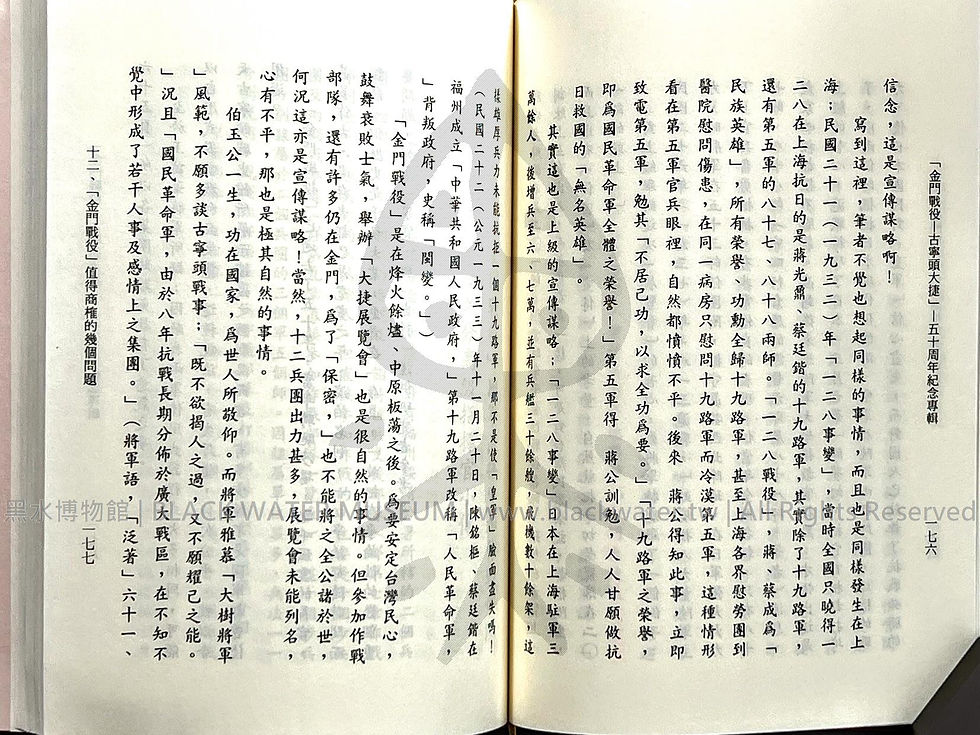 「金門戰役—古寧頭大捷」—五十周年紀念專輯
一七六
信念，這是宣傳謀略啊！
寫到這裡，筆者不覺也想起同樣的事情，而且也是同樣發生在上
海；民國二十一（一九三二）年「一二八事變」，當時全國只曉得一
二八在上海抗日的是蔣光鼐、蔡廷鍇的十九路軍，其實除了十九路軍，
還有第五軍的八十七、八十八兩師。「一二八戰役」，蔣、蔡成爲「
民族英雄」，所有榮譽、功勳全歸十九路軍，甚至上海各界慰勞團到
醫院慰問傷患，在同一病房只慰問十九路軍而冷漠第五軍，這種情形
看在第五軍官兵眼裡，自然都憤憤不平。後來　蔣公得知此事，立即
致電第五軍，勉其「不居己功，以求全功爲要。」「十九路軍之榮譽，
即爲國民革命軍全體之榮譽！」第五軍得　蔣公訓勉，人人甘願做抗
日救國的「無名英雄」。
其實這也是上級的宣傳謀略；「一二八事變」日本在上海駐軍三
萬餘人，後增兵至六、七萬，並有兵艦三十餘艘，飛機數十餘架，這
樣雄厚兵力未能抗拒一個十九路軍，那不是使「皇軍」臉面盡失嗎！
（民國二十二（公元一九三三）年十一月二十日，陳銘樞、蔡廷鍇在
福州成立「中華共和國人民政府，」第十九路軍改稱「人民革命軍，
」背叛政府，史稱「閩變。」）
「金門戰役」是在烽火餘燼、中原板蕩之後。爲要安定台灣民心，
鼓舞衰敗士氣，舉辦「大捷展覽會」也是很自然的事情。但參加作戰
部隊，還有許多仍在金門，爲了「保密，」也不能將之全公諸於世，
何況這亦是宣傳謀略！當然，十二兵團出力甚多，展覽會未能列名，
心有不平，那也是極其自然的事情。
伯玉公一生，功在國家，爲世人所敬仰。而將軍雅慕「大樹將軍
」風範，不願多談古寧頭戰事；「既不欲揭人之過，又不願耀己之能。
」況且「國民革命軍，由於八年抗戰長期分佈於廣大戰區，在不知不
覺中形成了若干人事及感情上之集團。」（將軍語，「泛著」六十一、
十二、「金門戰役」值得商榷的幾個問題
一七七
黑水博物館 | BLACK WATER MUSEUM | www.blackwater.tw | All Rights Reserved